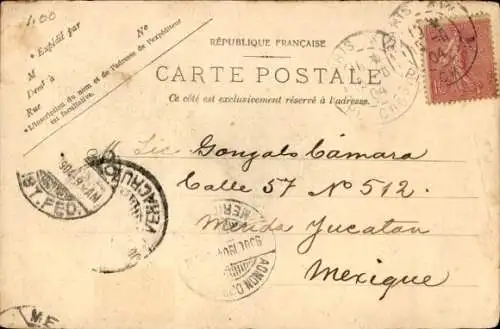 1.00
* Expédié par Nº
M
Demt à
Rue
* L'inscription du nom et de l'adresse de l'expéditeur
est facultative.
RÉPUBLIQUE FRANÇAISE
CARTE POSTALE
Ce côté est exclusivement réservé à l'adresse.
PARIS
04
M. Lic Gonzalo Cámara
Calle 57 Nº 512.
Merida Yucatan
Mexique
VERACRUZ
MER
JUL 1904
ME